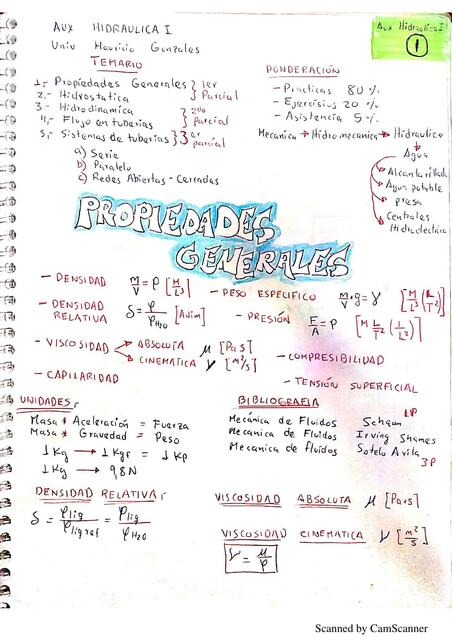 AUX HIDRAULICA I
Univ Mauricio Gonzales
Aux Hidraulica I
1
TEMARIO
1.- Propiedades Generales } 1er Parcial
2.- Hidrostatica
3.- Hidrodinamica } 2do Parcial
4.- Flujo en tuberias
5.- Sistemas de tuberias } 3er parcial
a) Serie
b) Paralelo
c) Redes Abiertas - Cerradas
PONDERACIÓN
- Practicas 80 %
- Ejercisios 20 %
- Asistencia 5 %
Mecanica → Hidromecanica → Hidraulica
Agua
Alcantarillado
Agua potable
presa
Centrales Hidroelectrica
PROPIEDADES
GENERALES
- DENSIDAD m/V = ρ [M/L³]
- PESO ESPECIFICO m/V · g = γ
- DENSIDAD RELATIVA δ = ρ/ρH₂O [Adim]
- PRESIÓN F/A = P
- VISCOSIDAD → ABSOLUTA μ [Pa·s]
→ CINEMATICA ν [m²/s]
- COMPRESIBILIDAD
- CAPILARIDAD
- TENSIÓN SUPERFICIAL
UNIDADES.
Masa * Aceleración = Fuerza
Masa * Gravedad = Peso
1 Kg → 1 Kgf = 1 Kp
1 Kg → 9,8 N
BIBLIOGRAFIA
Mecánica de Fluidos Schaum
Mecanica de Fluidos Irving Shames
Mecanica de fluidos Sotelo Avila
3P
DENSIDAD RELATIVA.
δ = ρliq/ρliq ref = ρliq/ρH₂O
VISCOSIDAD ABSOLUTA μ [Pa·s]
VISCOSIDAD CINEMATICA ν [m²/s]
ν = μ/ρ
Scanned by CamScanner